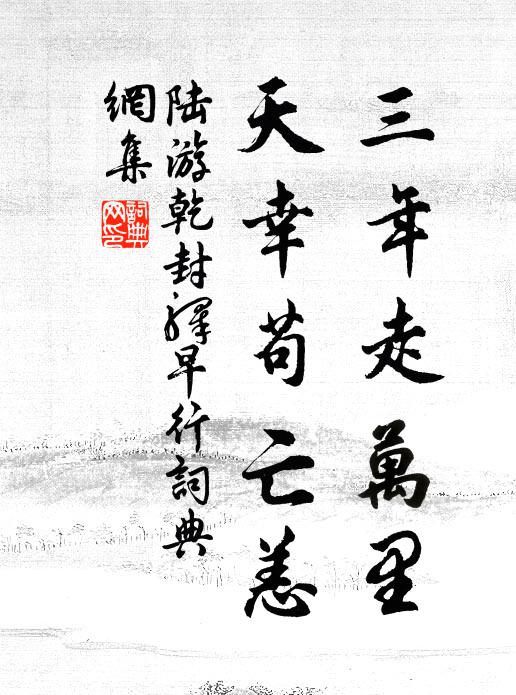 三年走萬里
天幸苟亡恙
陆游乾封驛早行詞典
網集
詞典
网印